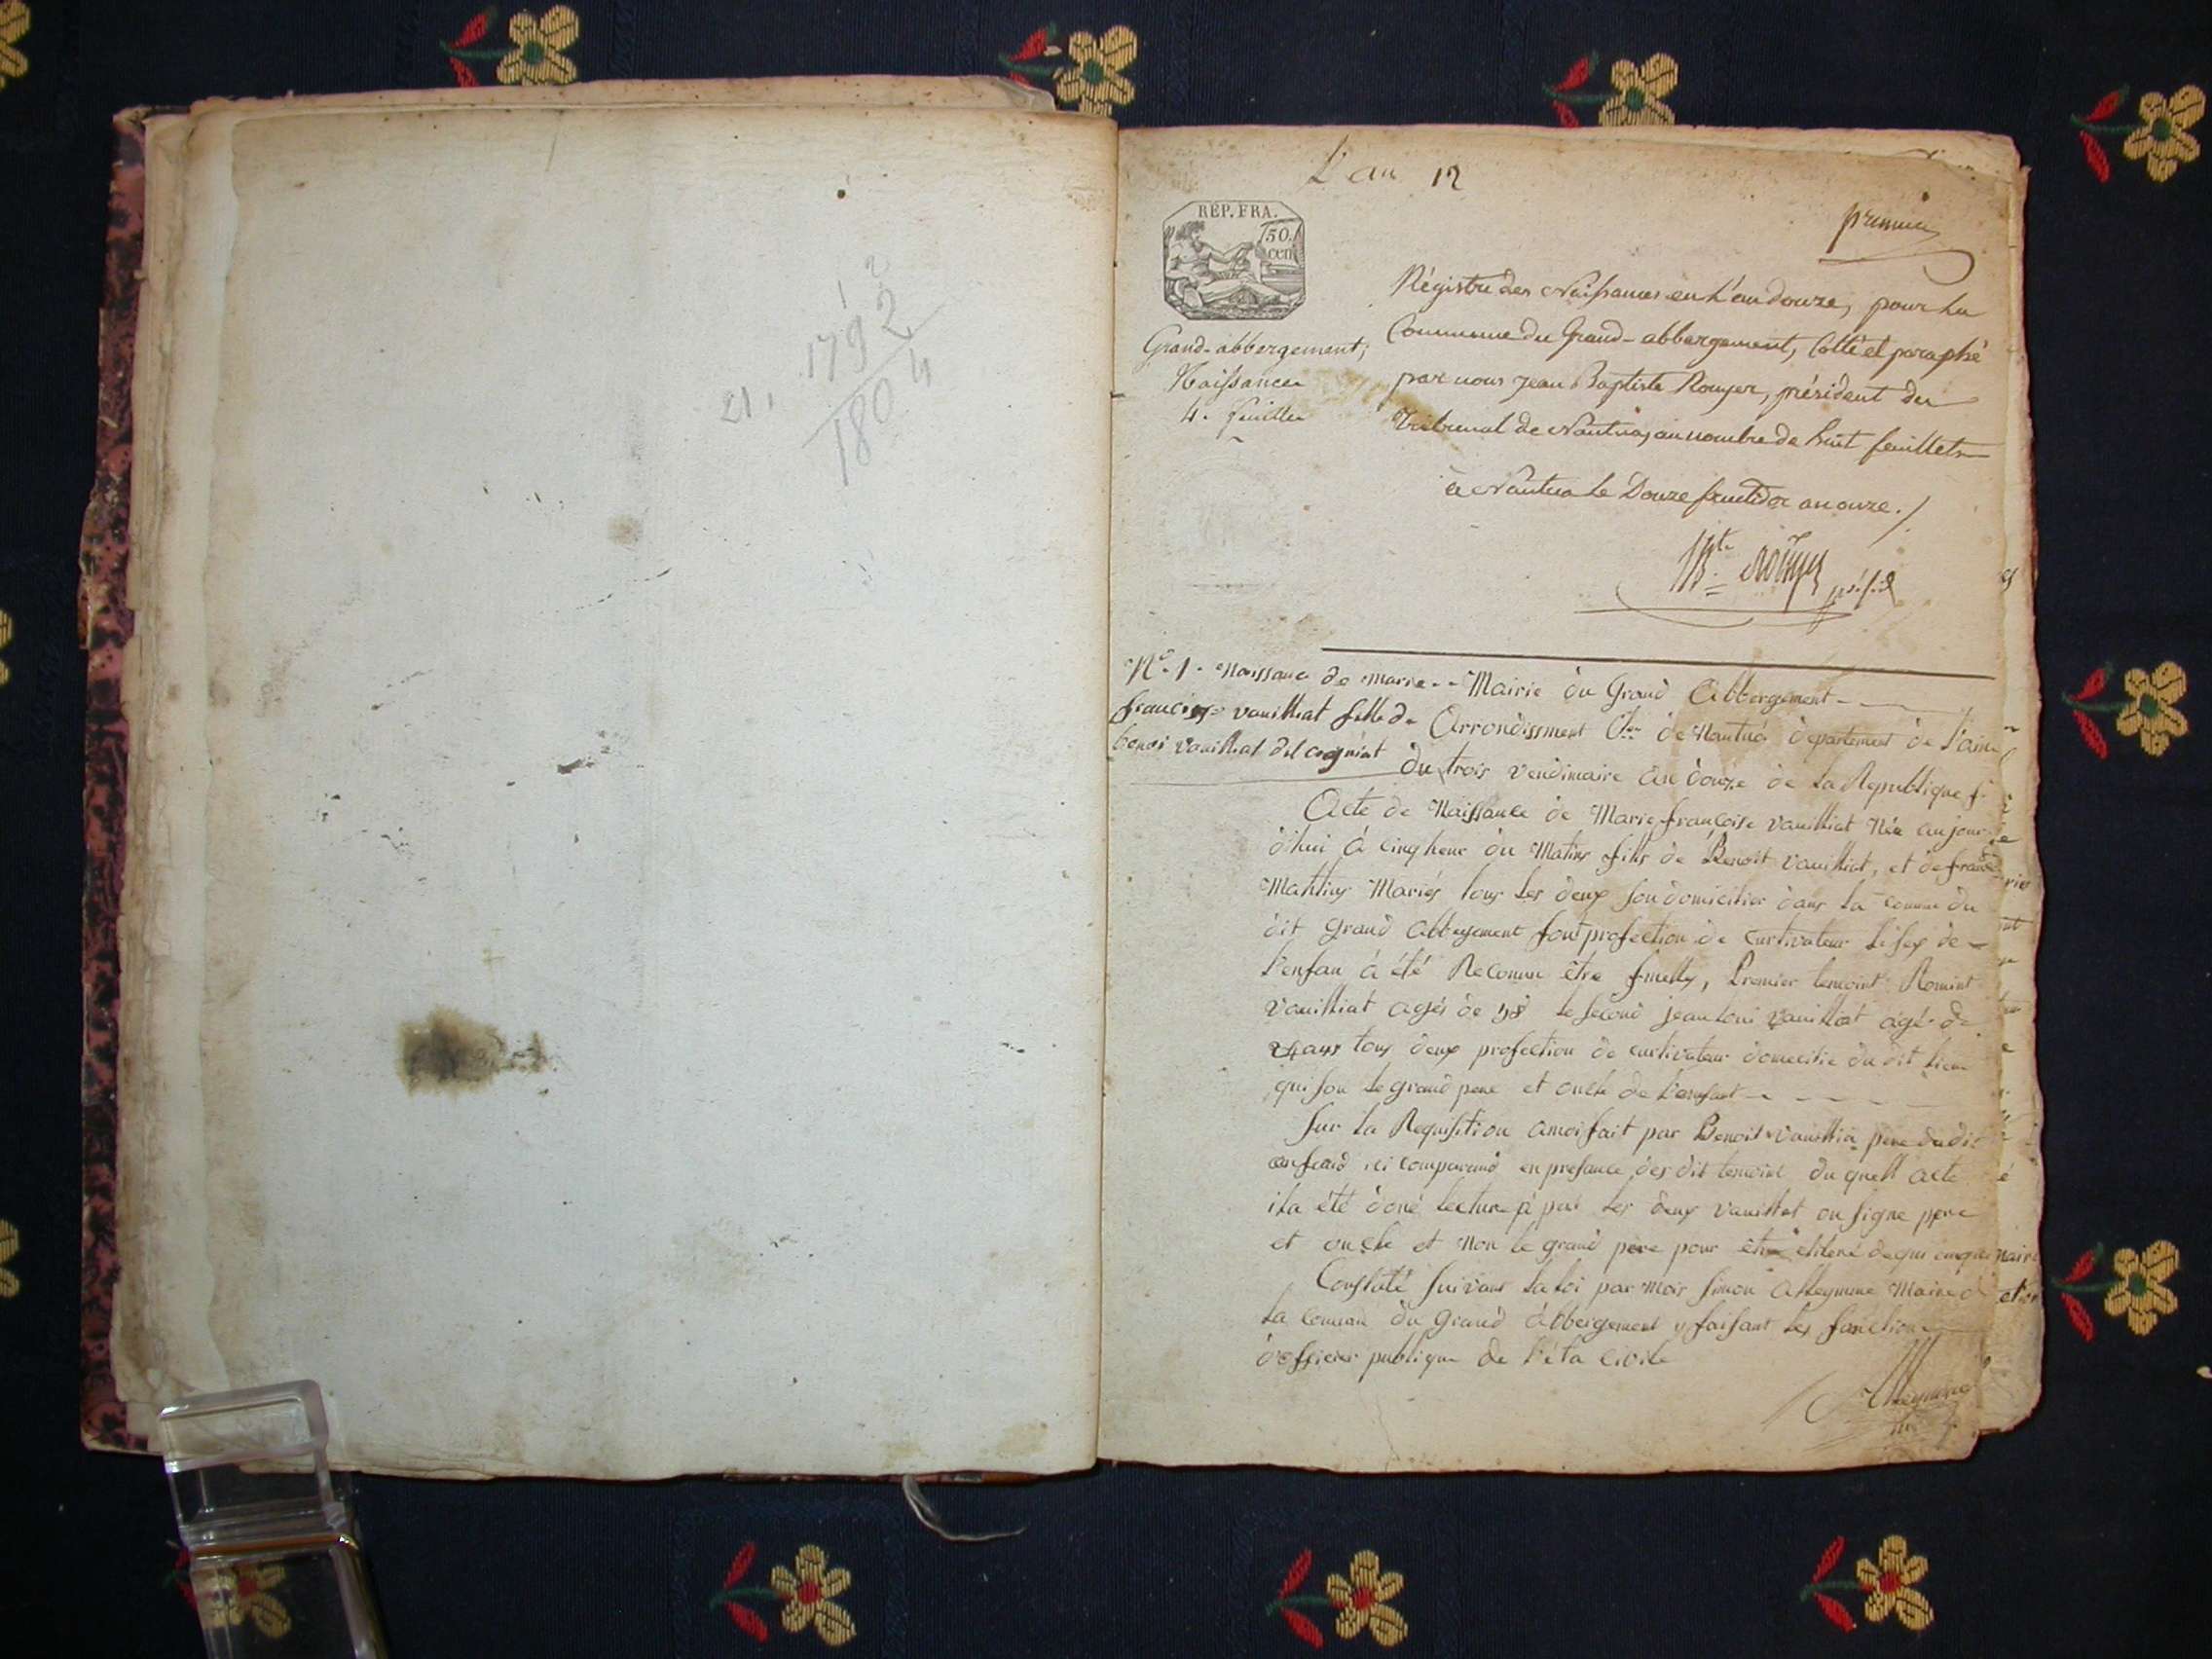 1792
1804
L'an 12
premier
REP. FRA.
50.
cent
Grand-abbergement;
Naissances
4. feuilles
Régistre des Naissances en L'an douze, pour La
Commune du Grand-abbergement, Cotté et paraphé
par nous Jean Baptiste Rouyer, président du
Tribunal de Nantua, au nombre de huit feuillets
à Nantua Le Douze fructidor an onze./.
Rouyer présid
N°. 1. Naissance de marie
françoise vauilliat fille de
benoi vauilliat dit cogniat
Mairie du Grand Abbergement
Arrondissment de Nantua departement de L'ain
Du trois vendimaire an douze de La Republique f.
Acte de Naissance de Marie francoise vauilliat Née aujour
d'hui à cinq heur du Matin fille de Benoit vauilliat, et de
Mariés tous Les deux son domicilier dans La comune du
dit grand Abbergement font profection de curtivateur Le sex de
L'enfan à été Reconnu être fmelle, Premier temoint Romint
vauilliat agés de 58 Le second jean loui vauilliat agé de
24 ans tous deux profection de curtivateur domecilie du dit Lieu
qui son Le grand pere et oncle de L'enfant
Sur La Requisition amoi fait par Benoit vauillia pere dudit
enfand ici comparand en presance des dit temoint du quell acte
il a été doné Lecture Les deux vauilliat on signe pere
et oncle et Non Le grand père pour être
Constaté suivant La Loi par Moi Simon Alleymme Maire d
La comune du Grand Abbergement y faisant Les fonctions
d'officier publique de L'éta Civile
Alleymme